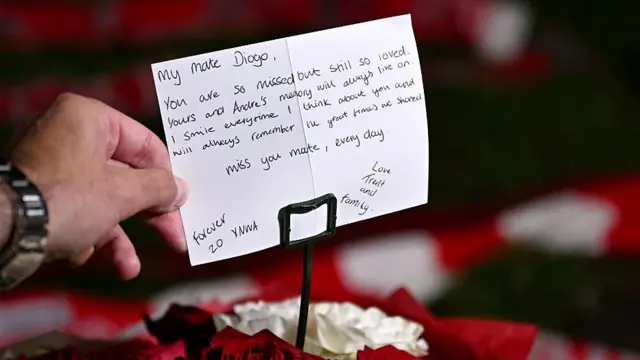 My mate Diogo,
You are so missed but still so loved.
Yours and Andre's memory will always live on.
I smile everytime I think about you and
will always remember the great times we shared
miss you mate, every day
Love
Trent
and
family.
forever
20 YNWA